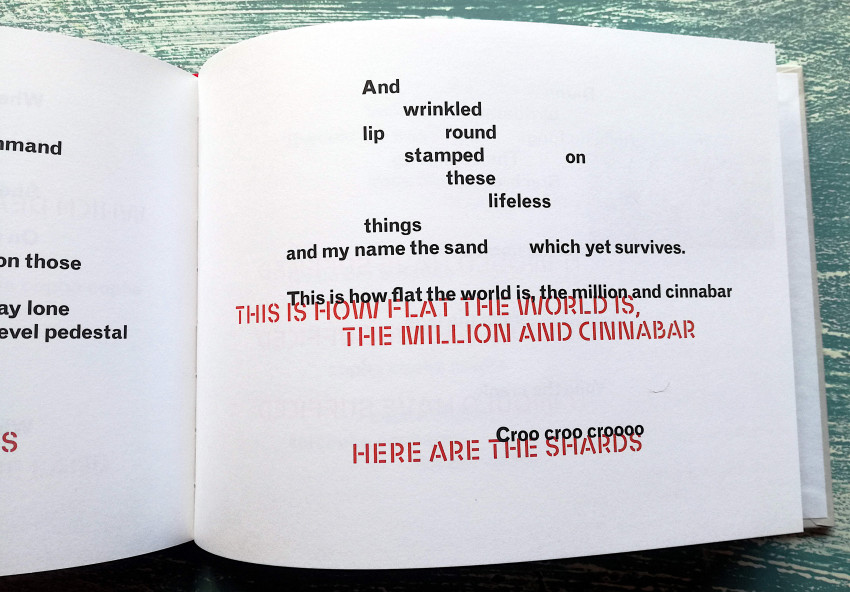 mmand
on those
ay lone
evel pedestal
S
And
wrinkled
lip round
stamped on
these
lifeless
things
and my name the sand which yet survives.
This is how flat the world is, the million and cinnabar
THIS IS HOW FLAT THE WORLD IS,
THE MILLION AND CINNABAR
Croo croo croooo
HERE ARE THE SHARDS